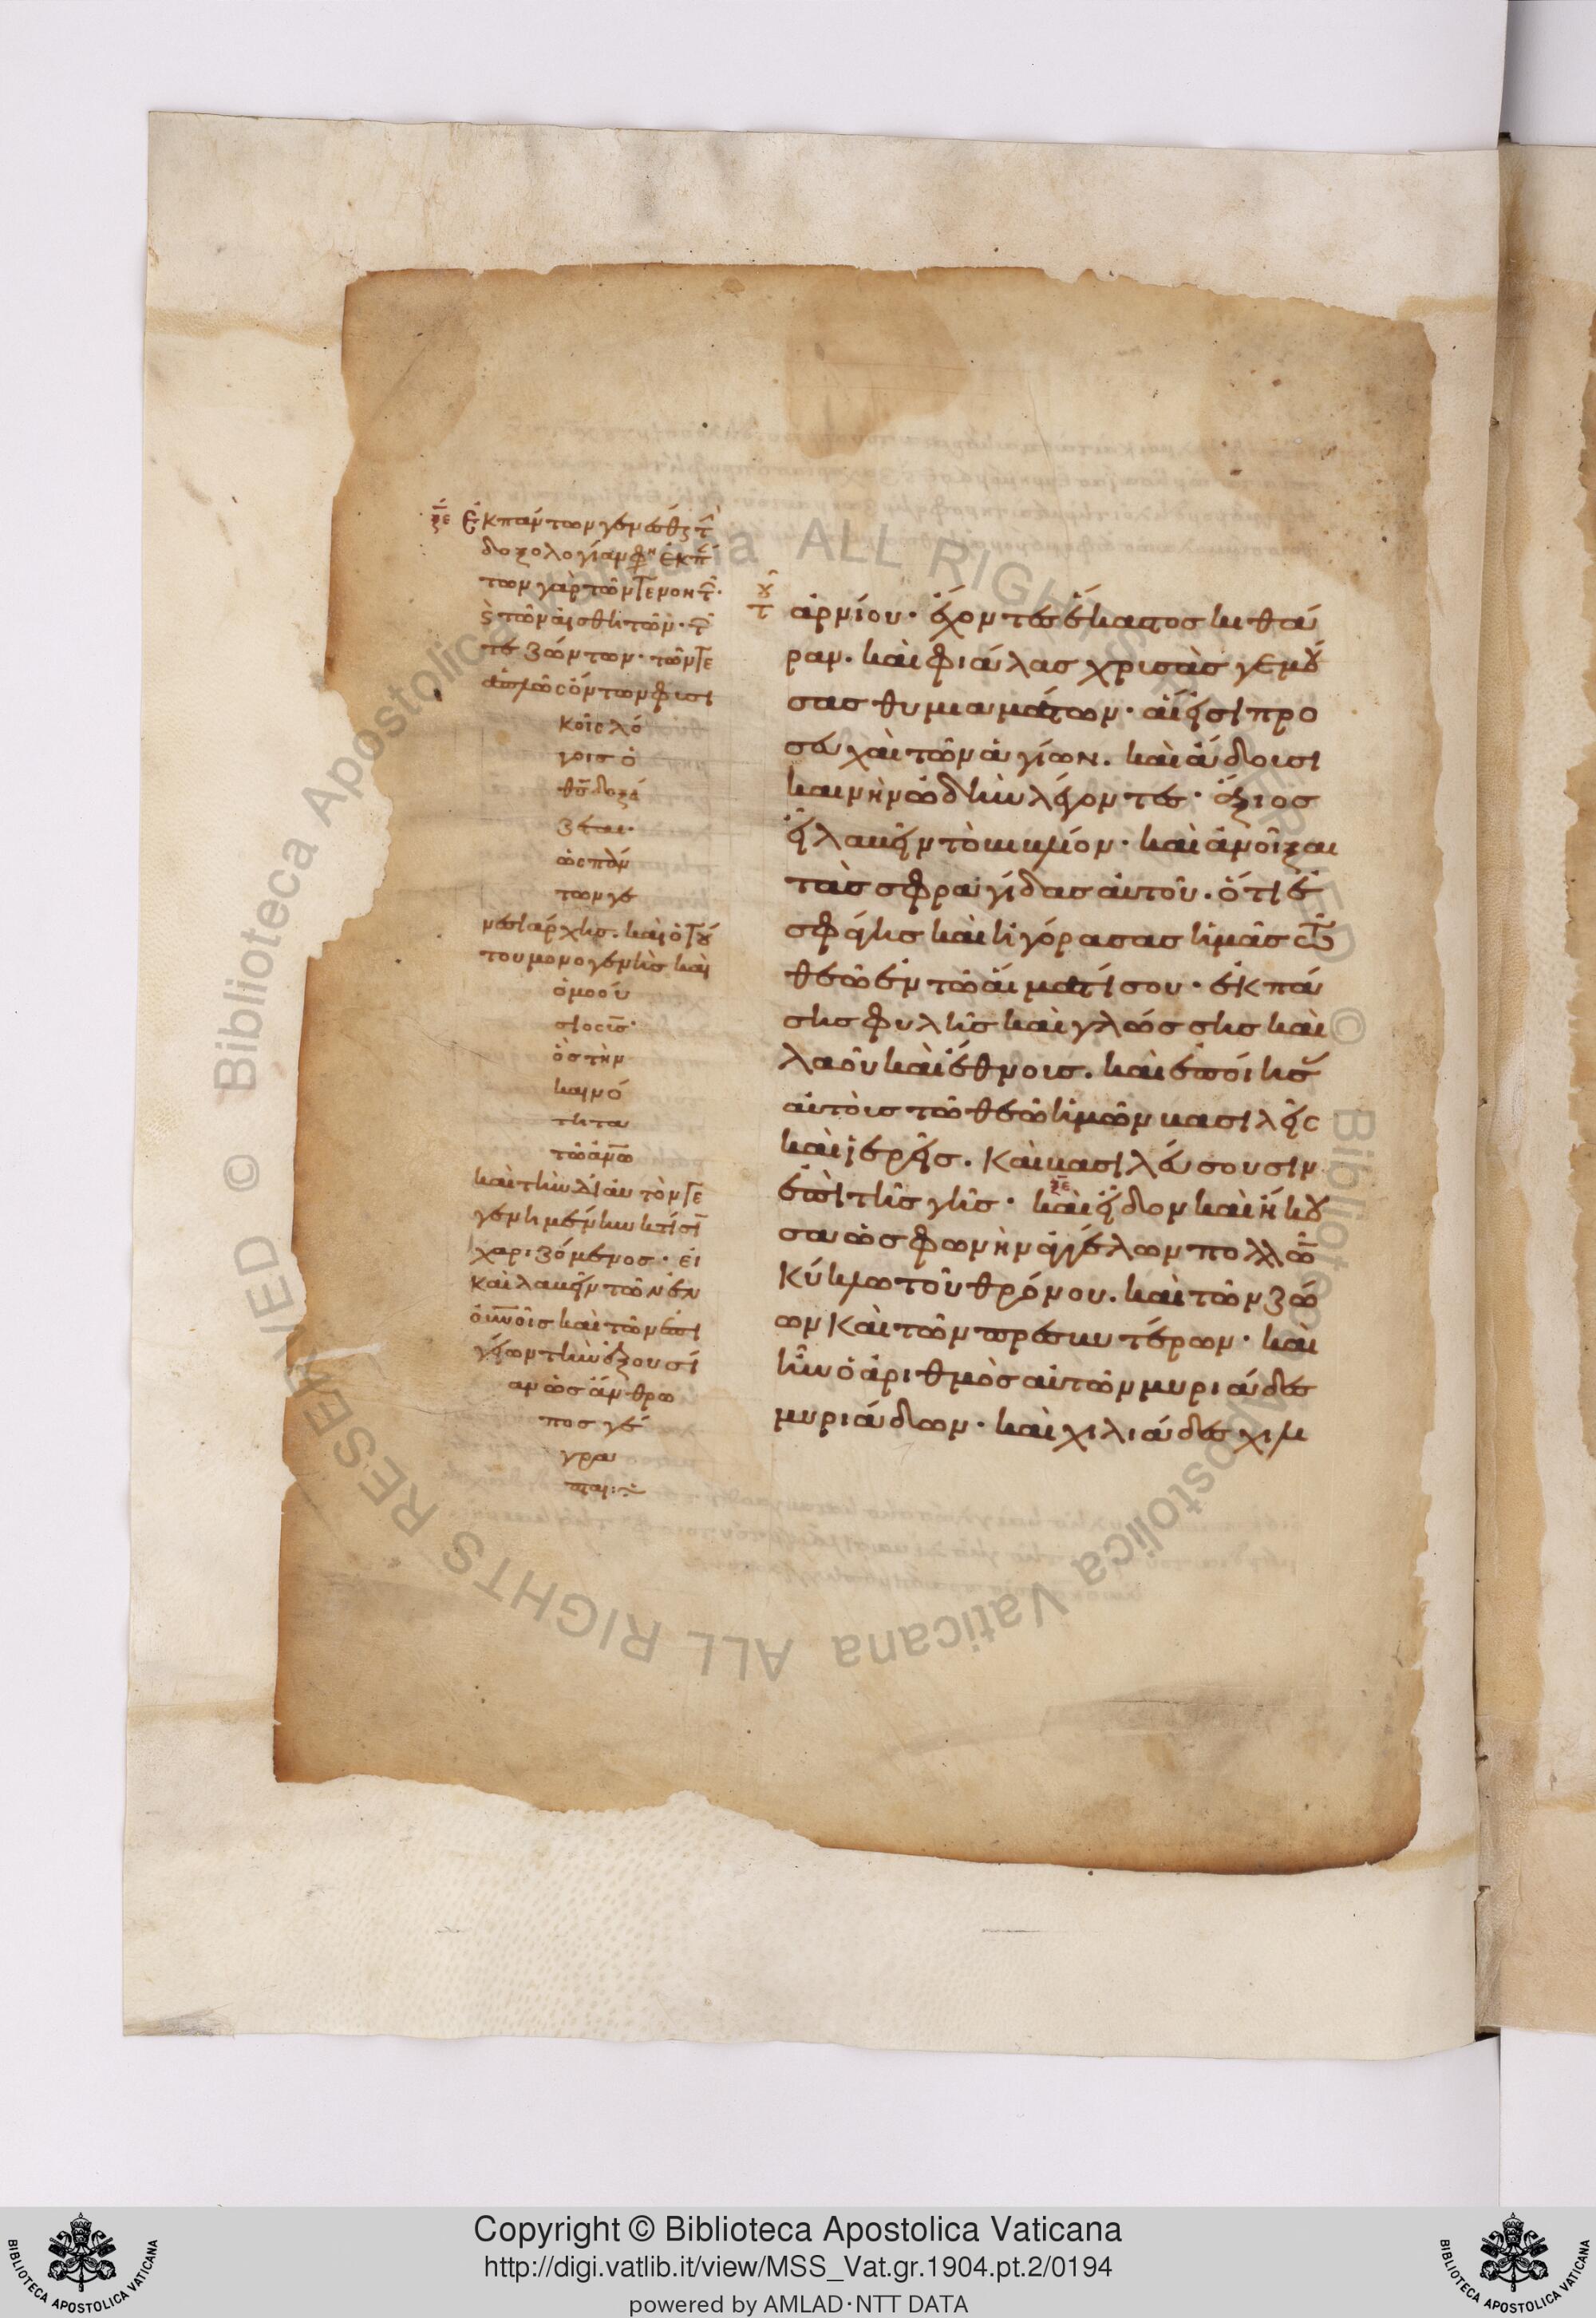 ξε Ἐκ πάντων γεμέσθς τ̑
δοξολογίαμ φη ἐκ π
των γὰρ τῶν
τῶν αἰσθητῶν· τ̑
τε ζώντων· τῶν
ἁπλῶς ὄντων φισι
κοῖς λό
γοις ὁ
θς δοξά
ζεται·
ὡς πάν
των γε
νεσιάρχης. καὶ ὁ τού
του μονογενὴς καὶ
ὁμοού
σιος υς·
ὁ στὴν
καινό
τητα
καὶ τὴν δι αυτὸν
γεμημένην κτίσι
χαριζόμενος· εἰ
καὶ λαβεῖν τῶν ἐν
οὐνοῖς καὶ τῶν ἐπι
γείων τὴν ἐξουσί
αν ὡς ἄνθρω
πος γέ
γρα
πται:~
τοῦ ἀρνίου· ἔχοντες ἕκαστος κιθά
ραν. καὶ φιάλας χρισὰς γεμού
σας θυμιαμάτων· αἵ εἰσι προ
σευχαὶ τῶν ἁγίων. καὶ ἄδουσι
καινὴν ὠδὴν λέγοντες· ἄξιος
εἶ λαβεῖν τὸ βιβλίον· καὶ ἀνοῖξαι
τὰς σφραγίδας αὐτοῦ. ὅτι ἐ
σφάγης καὶ ἠγόρασας ἡμᾶς τῶ
θεῶ ἐν τῶ αἵματί σου· ἐκ πά
σης φυλῆς καὶ γλώσσης καὶ
λαοῦ καὶ ἔθνους. καὶ ἐποίησ
αὐτοὺς τῶ θεῶ ἡμῶν βασιλεῖς
καὶ ἱερεῖς. καὶ βασιλεύσουσιν
ἐπὶ τῆς γῆς· ξε καὶ εἶδον καὶ ἤκου
σα ὡς φωνὴν ἀγγέλων πολλῶ
κύκλω τοῦ θρόνου. καὶ τῶν ζώ
ων καὶ τῶν πρεσβυτέρων· καὶ
ἦν ὁ ἀριθμὸς αὐτῶν μυριάδες
μυριάδων· καὶ χιλιάδες χιλι
Copyright © Biblioteca Apostolica Vaticana
http://digi.vatlib.it/view/MSS_Vat.gr.1904.pt.2/0194
powered by AMLAD·NTT DATA
BIBLIOTECA APOSTOLICA VATICANA
BIBLIOTECA APOSTOLICA VATICANA
© Biblioteca Apostolica Vaticana ALL RIGHTS RESERVED © Biblioteca Apostolica Vaticana ALL RIGHTS RESERVED